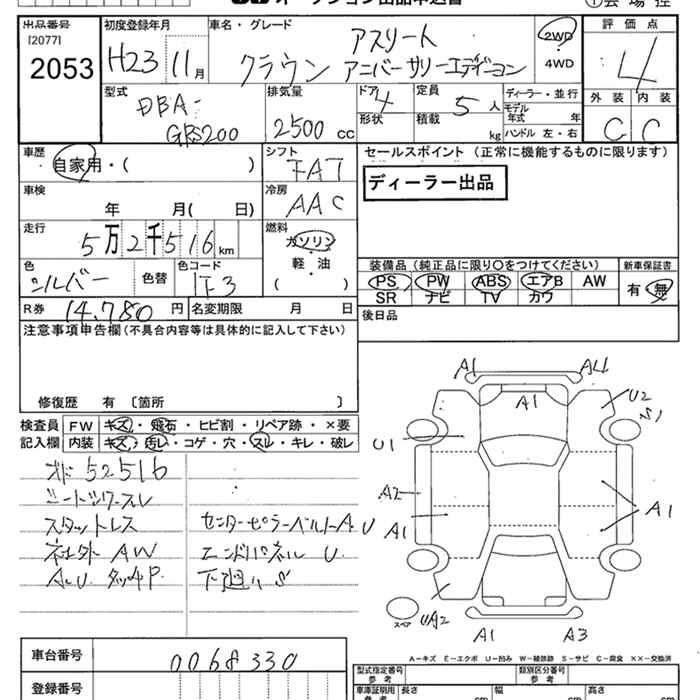 出品番号
[2077]
2053
初度登録年月
H23 11月
車名・グレード
アスリート
クラウン アニバーサリーエディション
2WD
4WD
評価点
4
外装 内装
C C
型式
DBA-
GRS200
排気量
2500 cc
ドア 4
形状
定員 5人
積載 kg
ディーラー・並行
モデル年式 年
ハンドル 左・右
車歴
自家用・( )
シフト
FAT
セールスポイント (正常に機能するものに限ります)
ディーラー出品
車検
年 月( 日)
冷房
AAC
走行
5万2千516km
燃料
ガソリン
軽・油
( )
色
シルバー
色替
色コード
1F3
装備品 (純正品に限り○をつけてください)
新車保証書
PS PW ABS エアB AW
SR ナビ TV カワ
有・無
R券 14,780円
名変期限 月 日
後日品
注意事項申告欄 (不具合内容等は具体的に記入して下さい)
修復歴 有 〔箇所 〕
検査員 FW キズ・飛石・ヒビ割・リペア跡・×要
記入欄 内装 キズ・汚レ・コゲ・穴・スレ・キレ・破レ
オド 52516
シートシワ・スレ
スタットレス
社外 AW
A.U. タッチP.
センターピラーベルトA U
エンドパネル U.
下廻り S
A1 A4
A1
U2
S1
U1
A2
A1
A1
UA2
スペア
A1 A3
A-キズ E-エクボ U-凹み W-補修跡 S-サビ C-腐食 XX-交換済
車台番号 0068330
登録番号
型式指定番号 参考
類別区分番号 参考
車庫証明用 参考
長さ cm 幅 cm 高さ cm